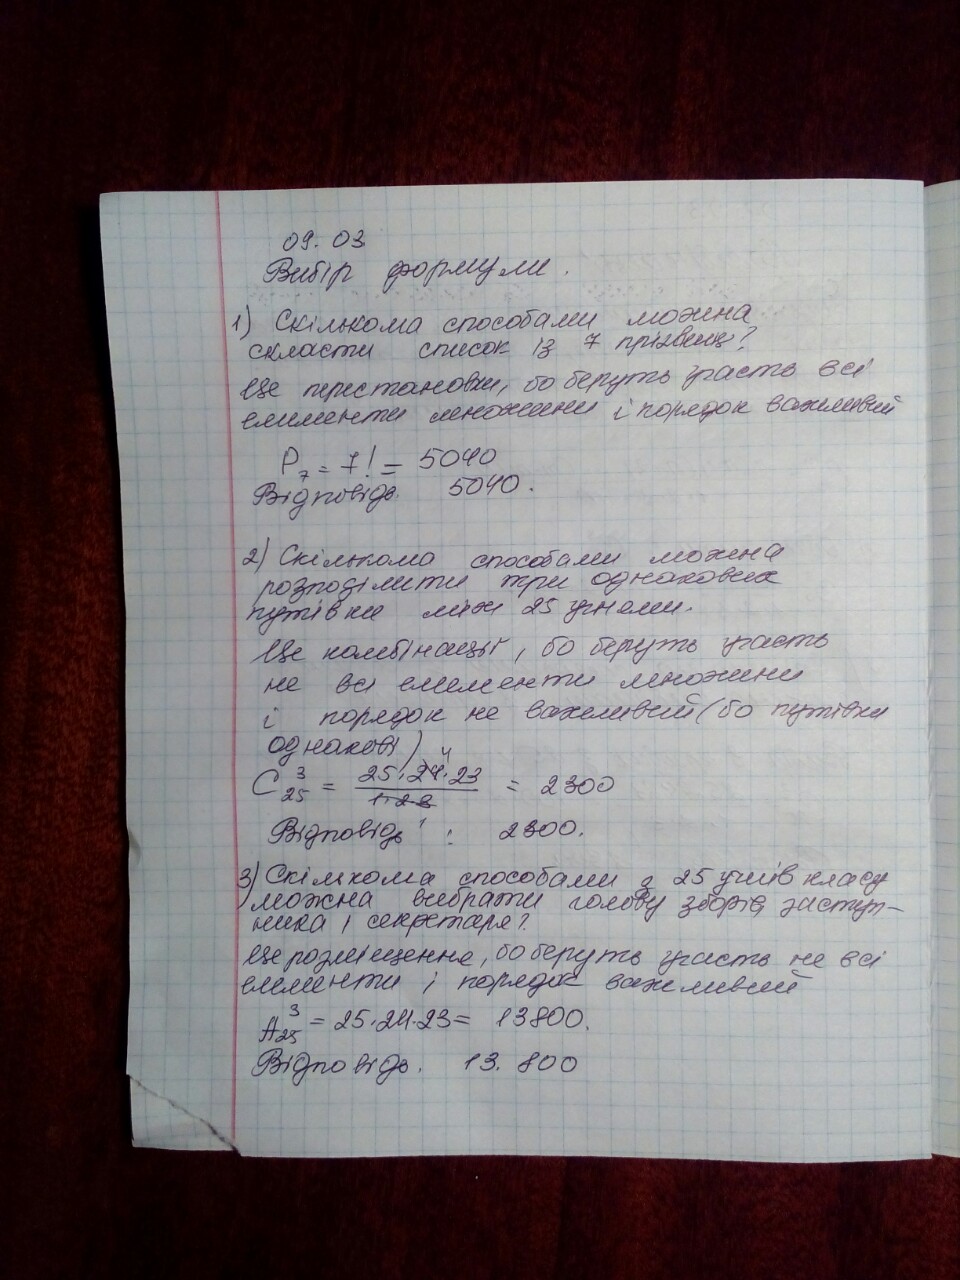 09.03
Вибір формули.
1) Скількома способами можна
скласти список із 7 прізвищ?
Це перестановки, бо беруть участь всі
елементи множини і порядок важливий
P₇ = 7! = 5040
Відповідь 5040.
2) Скількома способами можна
розподілити три однакових
путівки між 25 учнями.
Це комбінації, бо беруть участь
не всі елементи множини
і порядок не важливий (бо путівки
однакові)
C³₂₅ = 25·24·23 / 1·2·3 = 2300
Відповідь : 2300.
3) Скількома способами з 25 учнів класу
можна вибрати голову зборів, заступ-
ника і секретаря?
Це розміщення, бо беруть участь не всі
елементи і порядок важливий
A³₂₅ = 25·24·23 = 13800.
Відповідь. 13.800